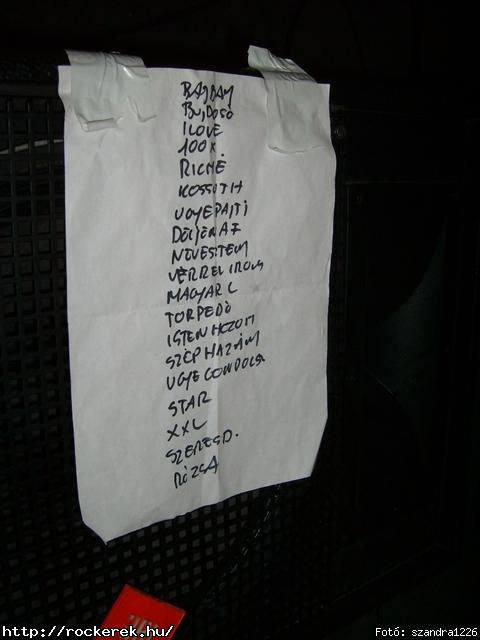 BUJDOSÓ
I LOVE
100X
RICHÉ
KOSSUTH
UGYEPAJTI
DÉLJEN AZ
NEVESITEM
VÉRREL IROM
MAGYAR L
TORPEDÓ
ISTEN HOZOTT
SZÉP HAZÁM
UGYE GONDOLSZ
STAR
XXL
SZERESD.
RÓZSA
http://rockerek.hu/
Fotó: szandra1226